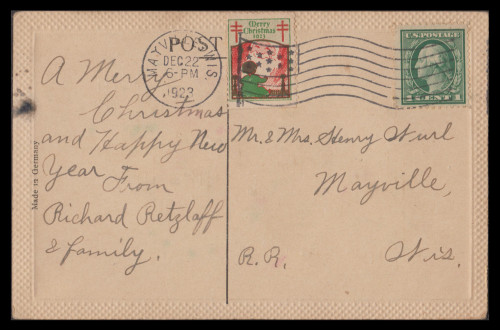 POST
MAYVILLE WIS.
DEC 22
6-PM
1923
Merry
Christmas
U.S. POSTAGE
1 CENT 1
A Merry
Christmas
and Happy New
Year From
Richard Retzlaff
& family.
Made in Germany
Mr. & Mrs. Henry Wurl
Mayville,
R.R. Wis.